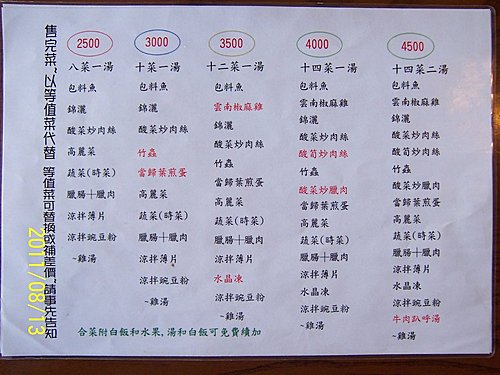 售完菜,以等值菜代替 等值菜可替換或補差價,請事先告知
2500
八菜一湯
包料魚
錦灑
酸菜炒肉絲
高麗菜
蔬菜(時菜)
臘腸+臘肉
涼拌薄片
涼拌豌豆粉
~雞湯
3000
十菜一湯
包料魚
錦灑
酸菜炒肉絲
竹蟲
當歸葉煎蛋
高麗菜
蔬菜(時菜)
臘腸+臘肉
涼拌薄片
涼拌豌豆粉
~雞湯
3500
十二菜一湯
包料魚
雲南椒麻雞
錦灑
酸菜炒肉絲
竹蟲
當歸葉煎蛋
高麗菜
蔬菜(時菜)
臘腸+臘肉
涼拌薄片
水晶凍
涼拌豌豆粉
~雞湯
4000
十四菜一湯
包料魚
雲南椒麻雞
錦灑
酸菜炒肉絲
酸筍炒肉絲
竹蟲
酸菜炒臘肉
當歸葉煎蛋
高麗菜
蔬菜(時菜)
臘腸+臘肉
涼拌薄片
水晶凍
涼拌豌豆粉
~雞湯
4500
十四菜二湯
包料魚
雲南椒麻雞
錦灑
酸菜炒肉絲
酸筍炒肉絲
竹蟲
酸菜炒臘肉
當歸葉煎蛋
高麗菜
蔬菜(時菜)
臘腸+臘肉
涼拌薄片
水晶凍
涼拌豌豆粉
牛肉趴呼湯
~雞湯
合菜附白飯和水果,湯和白飯可免費續加
2011/08/13